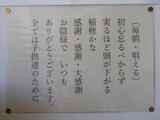 〔毎朝・唱える〕
初心忘るべからず
実るほど頭が下がる
稲穂かな
感謝・感謝・大感謝
お陰様で いつも
ありがとうございます。
全ては子供達のために